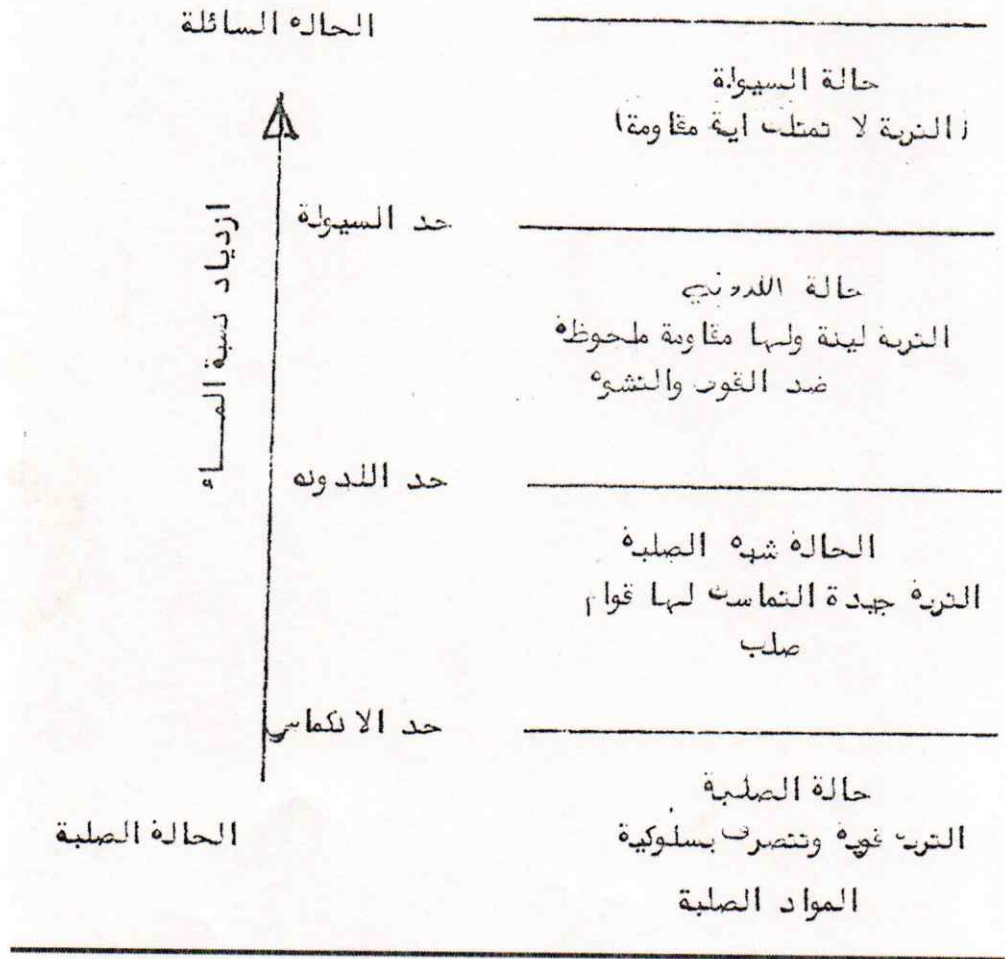 الحالة السائلة
حالة السيولة
(التربة لا تمتلك اية مقاومة)
ازدياد نسبة المـــاء
حد السيولة
حالة اللدونة
التربة لينة ولها مقاومة ملحوظة
ضد القوى والتشوه
حد اللدونه
الحالة شبه الصلبة
التربة جيدة التماسك لها قوام
صلب
حد الانكماش
حالة الصلبة
الحالة الصلبة
التربة قوية وتتصرف بسلوكية
المواد الصلبة